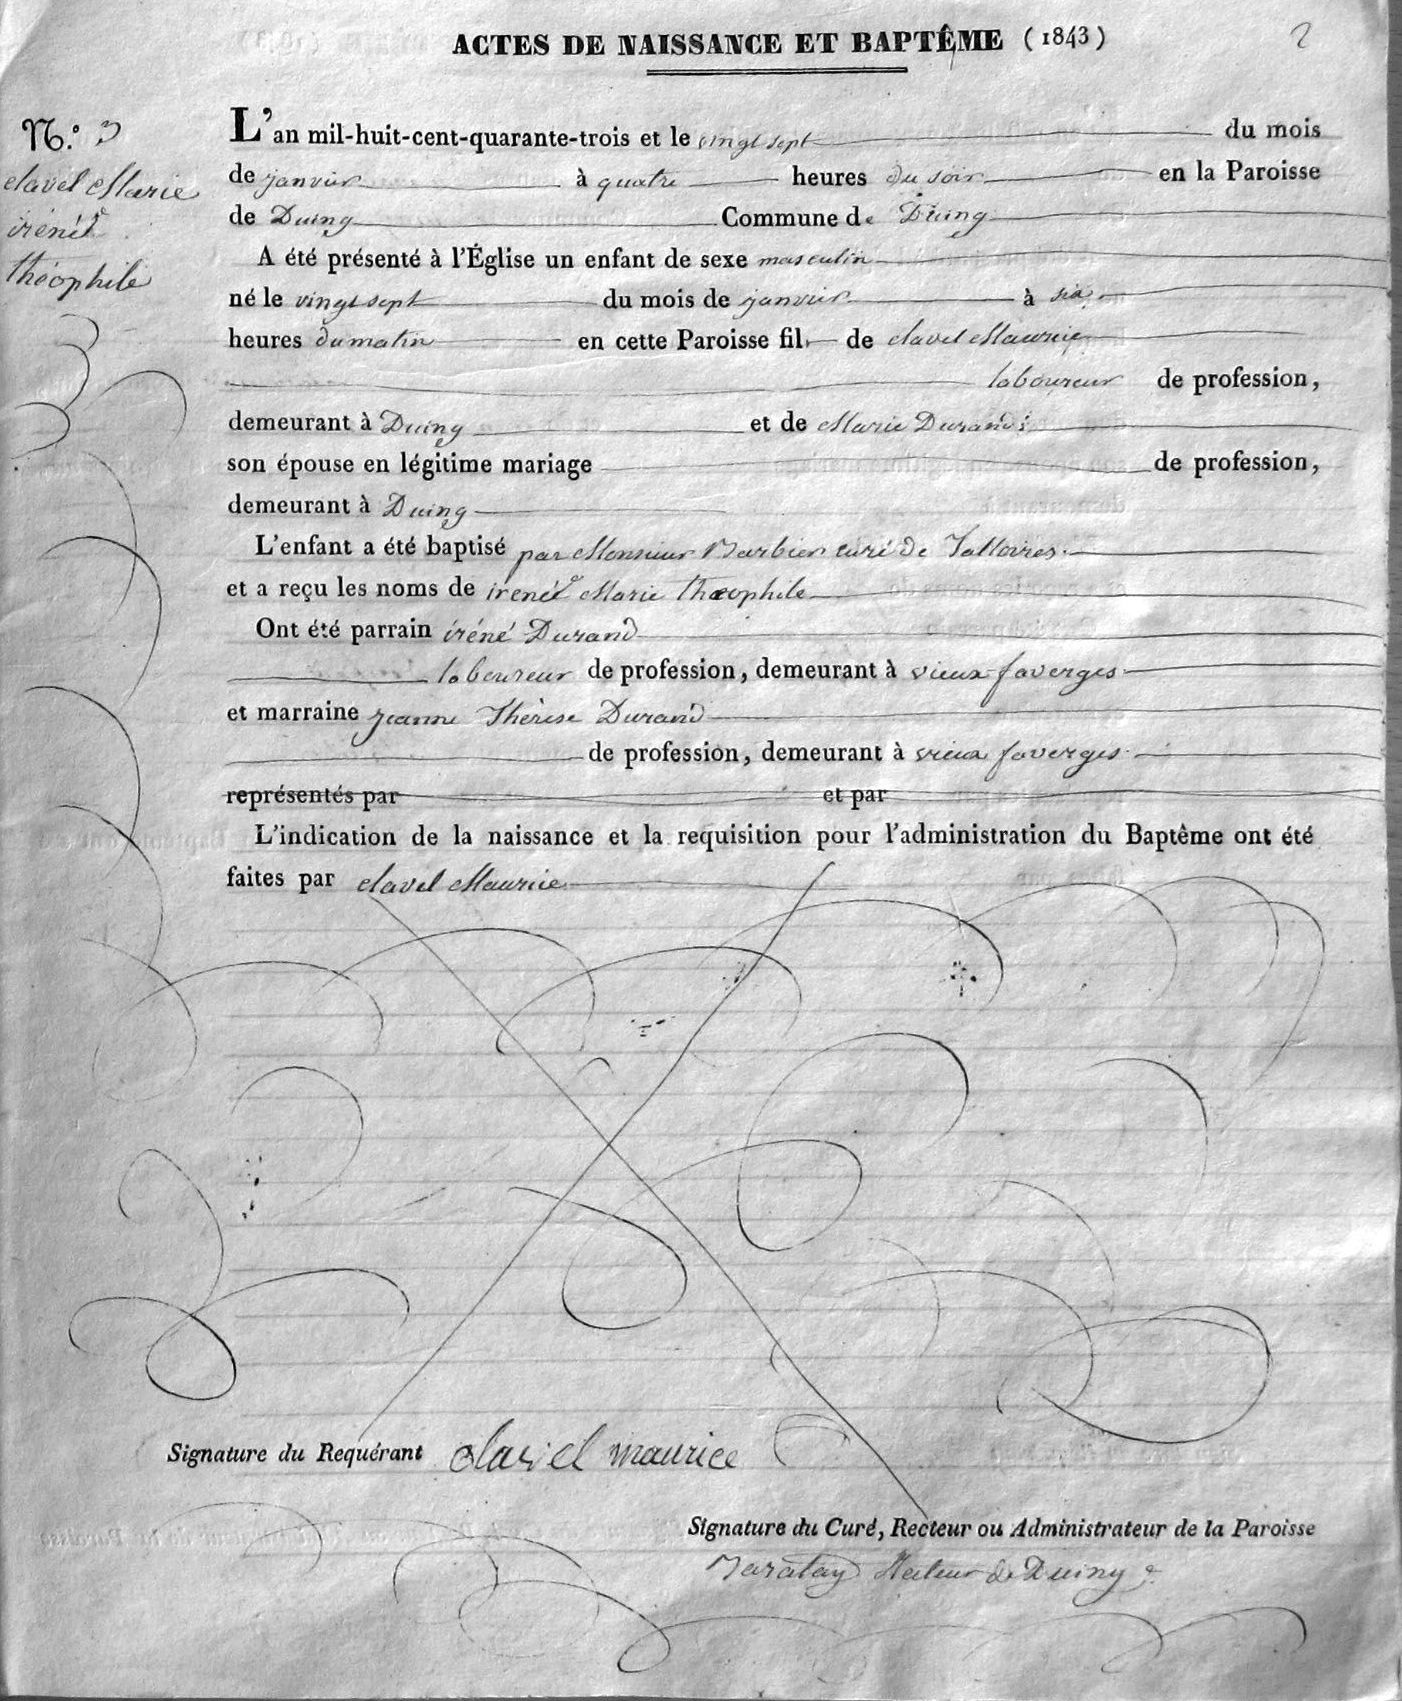 ACTES DE NAISSANCE ET BAPTÊME (1843)
2
N.° 3
clavel Marie
iréné
théophile
L'an mil-huit-cent-quarante-trois et le vingt sept du mois
de janvier à quatre heures du soir en la Paroisse
de Duing Commune de Duing
A été présenté à l'Église un enfant de sexe masculin
né le vingt sept du mois de janvier à six
heures du matin en cette Paroisse fil de clavel Maurice
laboureur de profession,
demeurant à Duing et de Marie Durand
son épouse en légitime mariage de profession,
demeurant à Duing
L'enfant a été baptisé par Monsieur Barbier curé de Talloires
et a reçu les noms de irené Marie Théophile
Ont été parrain iréné Durand
laboureur de profession, demeurant à vieux faverges
et marraine jeanne Thérèse Durand
de profession, demeurant à vieux faverges
représentés par et par
L'indication de la naissance et la requisition pour l'administration du Baptême ont été
faites par clavel Maurice
Signature du Requérant clavel maurice
Signature du Curé, Recteur ou Administrateur de la Paroisse
Recteur de Duing